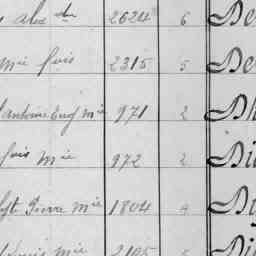 alex dre 2624 6 De
mie fois 2315 5 De
antoine Eug mie 971 2 Dh
fois mie 972 2 Di
hyte Pierre mie 1804 4 Di
Louis mie 2105 5 Di